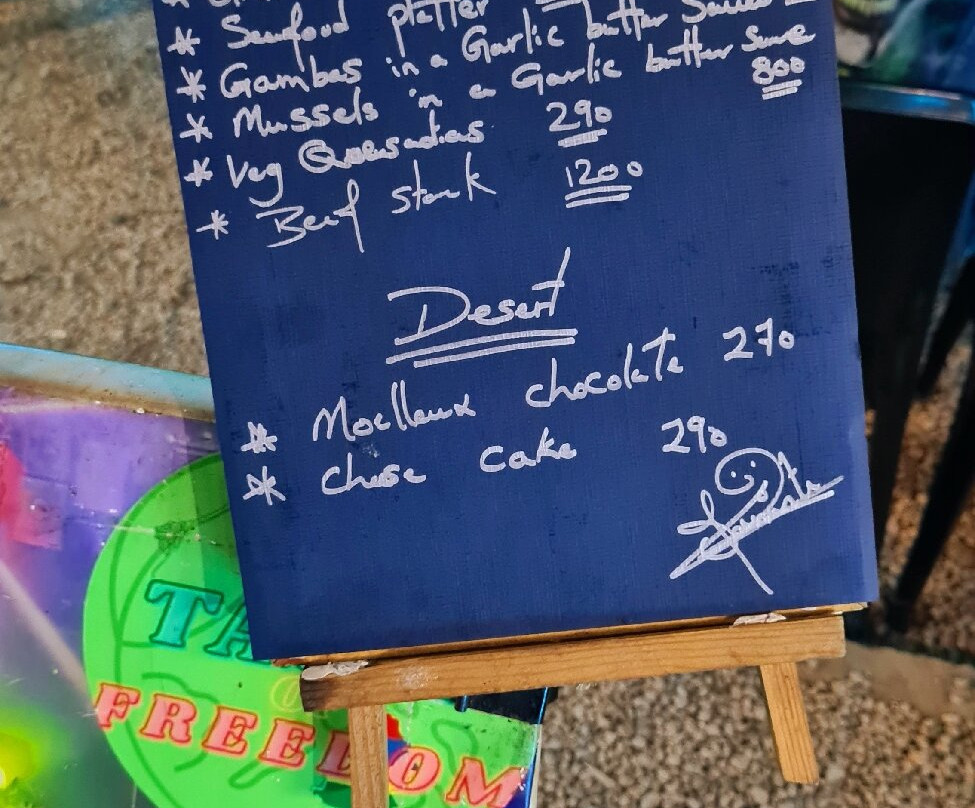 * Seafood platter
* Gambas in a Garlic butter Sauce
* Mussels in a Garlic butter Sauce 800
* Veg Quesadias 290
* Beef stack 1200
Desert
* Moelleux chocolate 270
* Chese cake 290
FREEDOM